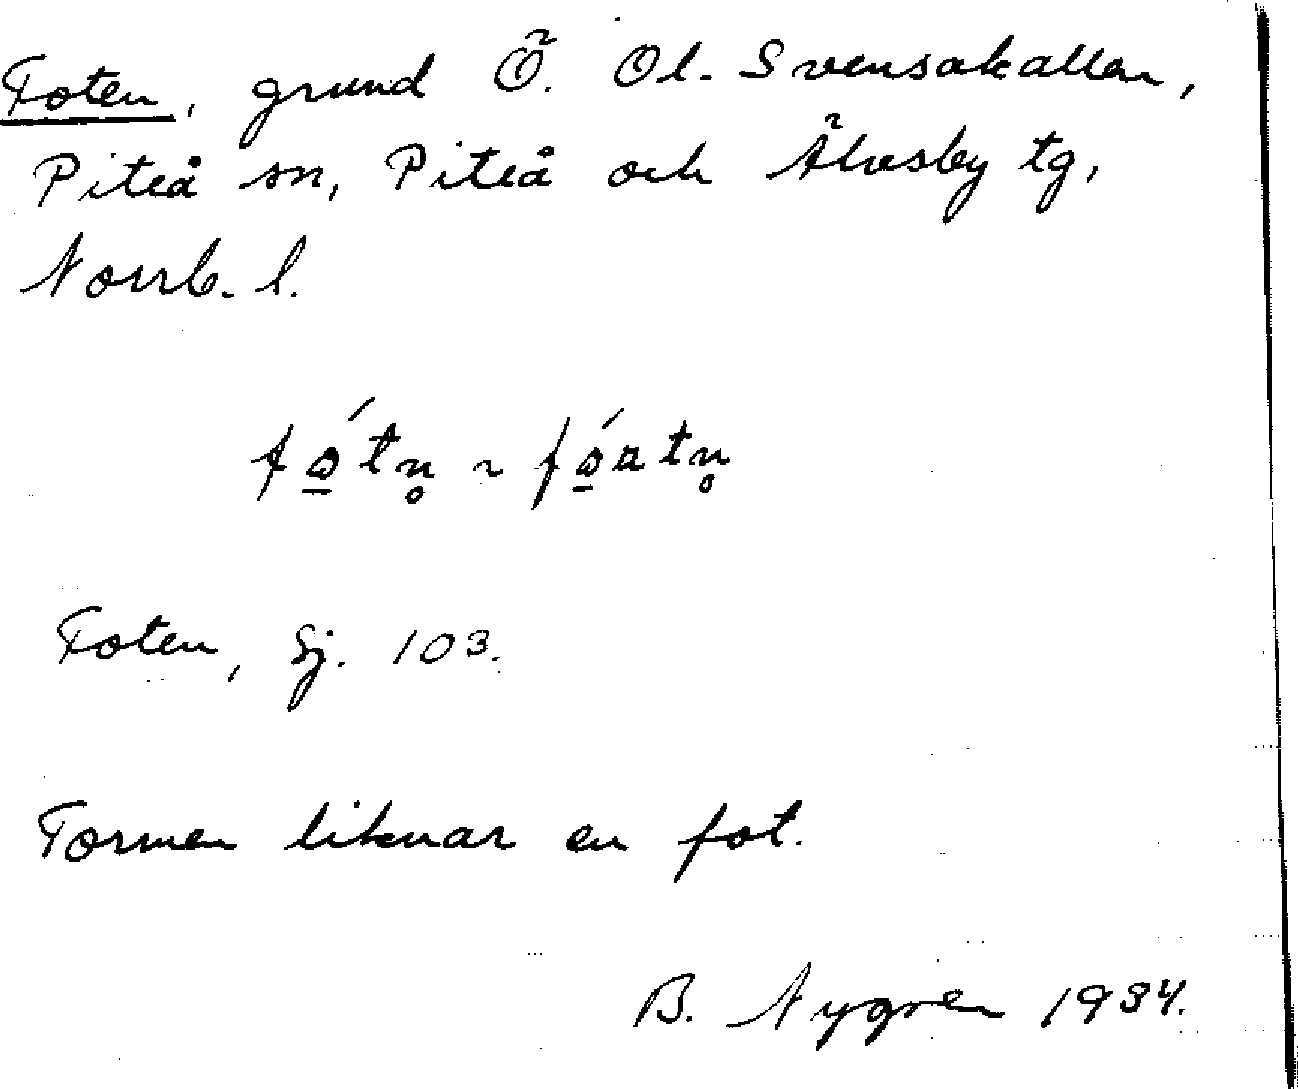 Foten, grund Ö. Ol. Svensakallen,
Piteå sn, Piteå och Älvsby tg,
Norrb. l.
fó̲tn̥ ~ fó̲atn̥
Foten, Sj. 103.
Formen liknar en fot.
B. Nygren 1934.